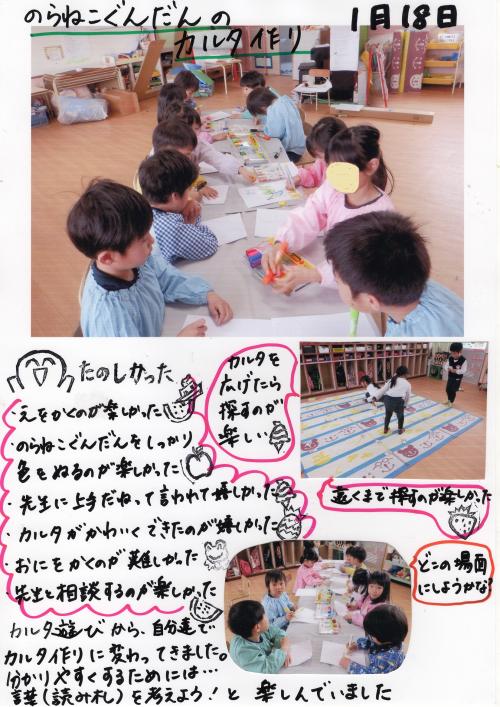 のらねこぐんだんの
カルタ作り
1月18日
たのしかった
・えをかくのが楽しかった
・のらねこぐんだんをしっかり
色をぬるのが楽しかった
・先生に上手だねって言われて嬉しかった
・カルタがかわいくできたのが嬉しかった
・おにをかくのが難しかった
・先生と相談するのが楽しかった
カルタを
広げたら
探すのが
楽しい
遠くまで探すのが楽しかった
どこの場面
にしようかな
カルタ遊びから、自分達で
カルタ作りに変わってきました。
分かりやすくするためには…
言葉(読み札)を考えよう!と楽しんでいました